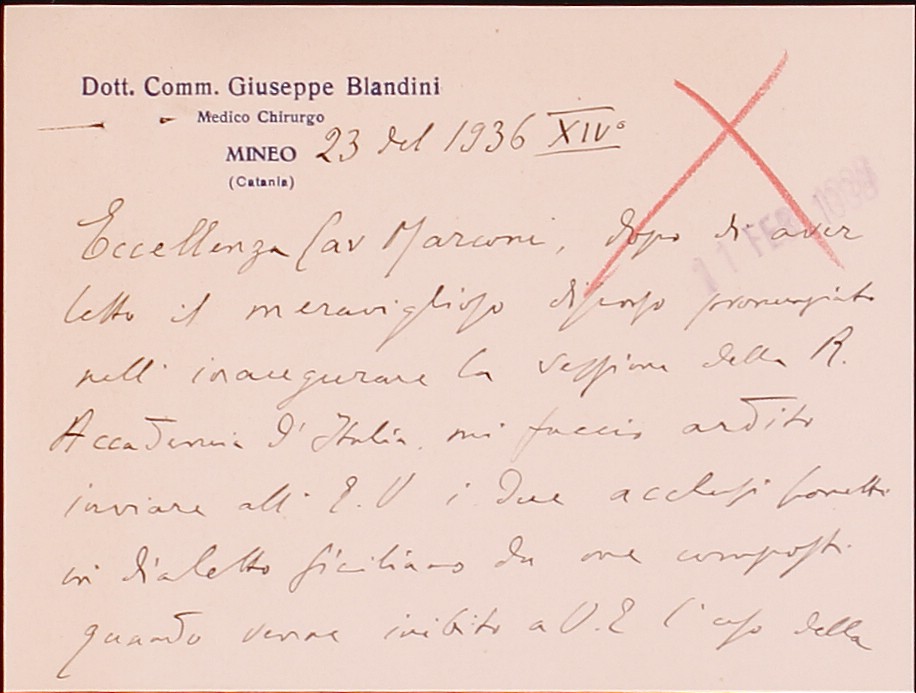 Dott. Comm. Giuseppe Blandini
Medico Chirurgo
MINEO
(Catania)
23 del 1936 XIVº
11 FEB.
Eccellenza Cav Marconi, dopo di aver
letto il meraviglioso discorso pronunziato
nell' inaugurare la sessione della R.
Accademia d' Italia, mi faccio ardito
inviare all' E.V i due acclusi sonetti
in dialetto siciliano da me composti
quando venne inibito a V.E l' uso della